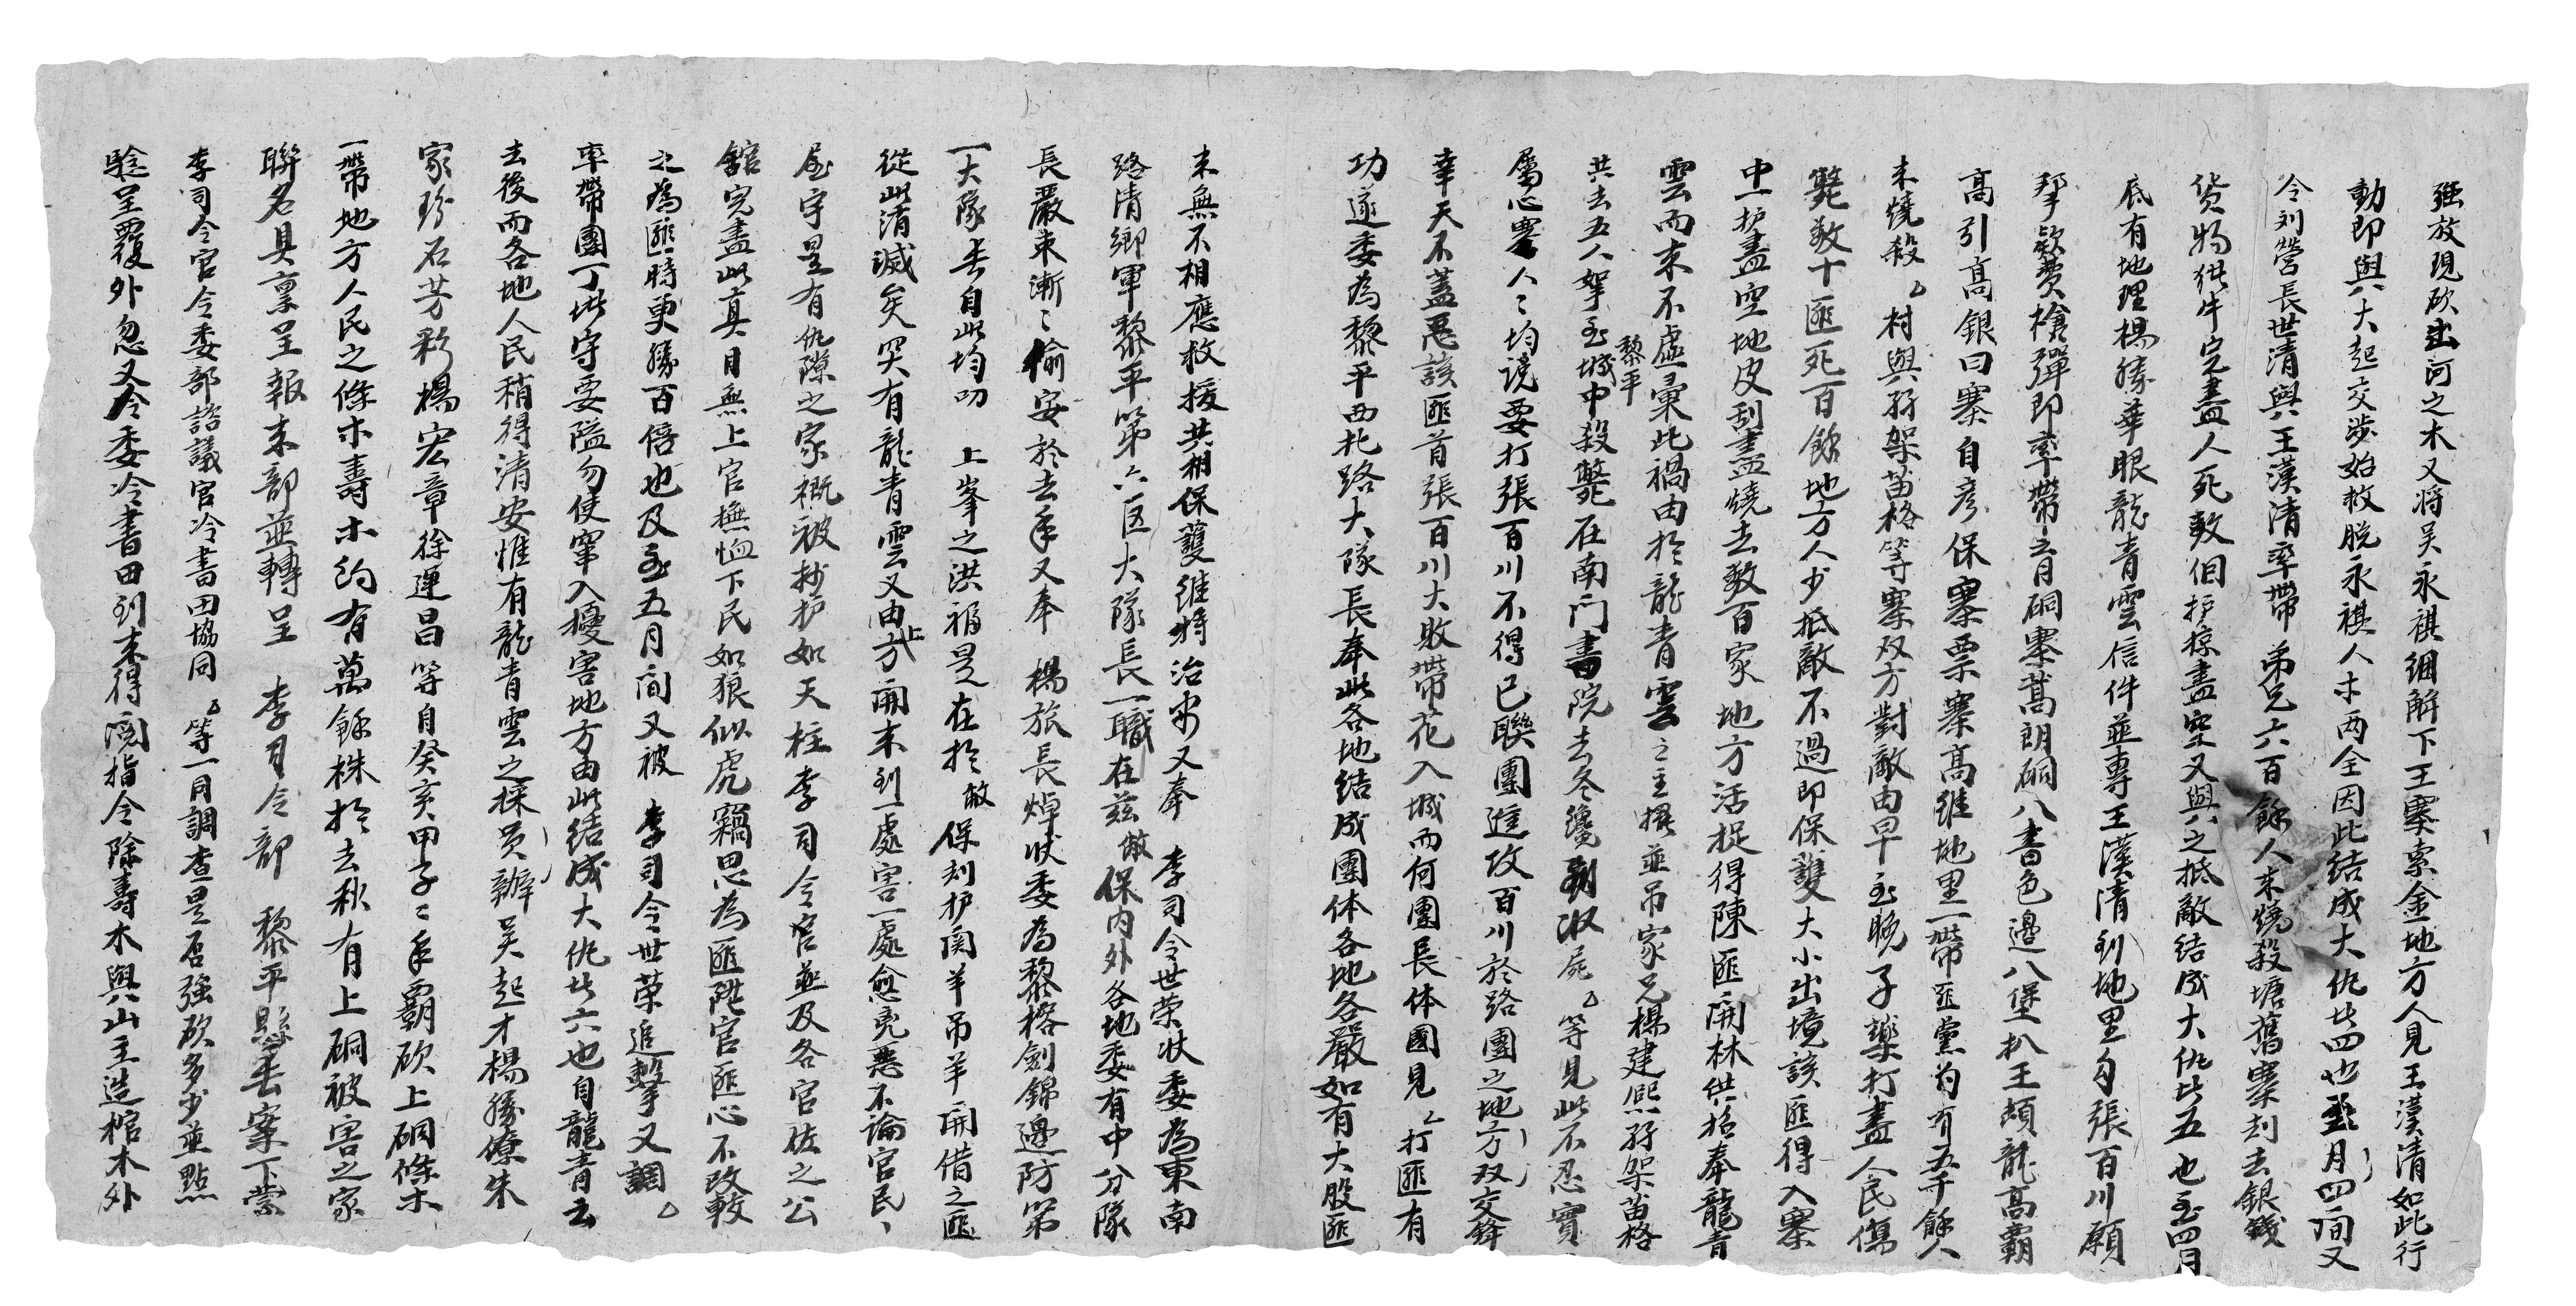 强放現砍出河之木又將吴永祺綑解下王寨索金地方人見王漢清如此行
動即與大起交涉始救脱永祺人木两全因此結成大仇此四也至月四间又
令刘營長世清與王漢清率帶弟兄六百餘人来燒殺塘舊寨刦去銀錢
货物猪牛完盡人死数佪护掠盡空又與之抵敵結成大仇此五也至四月
底有地理楊勝華眼龍青雲信件並專王漢清到地里勾張百川願
帮欵费槍彈即率帶青硐寨蒿朗硐八書色邊八堡扒王頼龍高霸
高引高銀曰寨自彦保寨票寨高維地里一帶匪黨为有五千餘人
来燒殺村與孖架苗格等寨双方對敵由早至晚子藥打盡人民傷
斃数十匪死百餘地方人少抵敵不過即保護大小出境該匪得入寨
中一护盡空地皮刮盡燒去数百家地方活捉得陳匪開林供招奉龍青
雲而来不虛彙此禍由於龍青雲之主撰並吊家兄楊建熙孖架苗格
共去五人拏至黎平城中殺斃在南门書院去冬纔到收屍等見此不忍實
屬心寒人人均说要打張百川不得已聯團進攻百川於路團之地方双交鋒
幸天不蓋惡該匪首張百川大败帶花入城而何團長体國見打匪有
功遂委為黎平西北路大隊長奉此各地結成團体各地各嚴如有大股匪
来無不相應救援共相保護維將治安又奉李司令世荣狀委為東南
路清鄉軍黎平第六区大隊長一職在兹敝保内外各地委有中分隊
長嚴束漸漸偷安於去年又奉楊旅長焯狀委為黎榕劍錦邊防第
一大隊長自此均叨上峯之洪福是在於敝保刦护関羊吊羊開借之匪
從此消滅矣突有龍青雲又由上方開来到一處害一處愈兇惡不論官民
屋宇是有仇隙之家概被抄护如天柱李司令官並及各官佐之公
舘完盡此真目無上官撫恤下民如狼似虎竊思為匪陞官匪心不改較
之為匪時更勝百倍也及至五月间又被李司令世荣追擊又調
率帶團丁此守要隘勿使窜入擾害地方由此結成大仇此六也自龍青雲
去後而各地人民稍得清安惟有龍青雲之採员辦吴起才楊勝僚朱
家珍石芳彩楊宏章徐運昌等自癸亥甲子二年霸砍上硐條木
一帶地方人民之條木壽木約有萬餘株於去秋有上硐被害之家
聯名具禀呈報来部並轉呈李司令部黎平縣長案下蒙
李司令官令委部諮議官冷書田協同等一同調查是否强砍多少並點
驗呈覆外忽又令委冷書田到来得閲指令除壽木與山主造棺木外